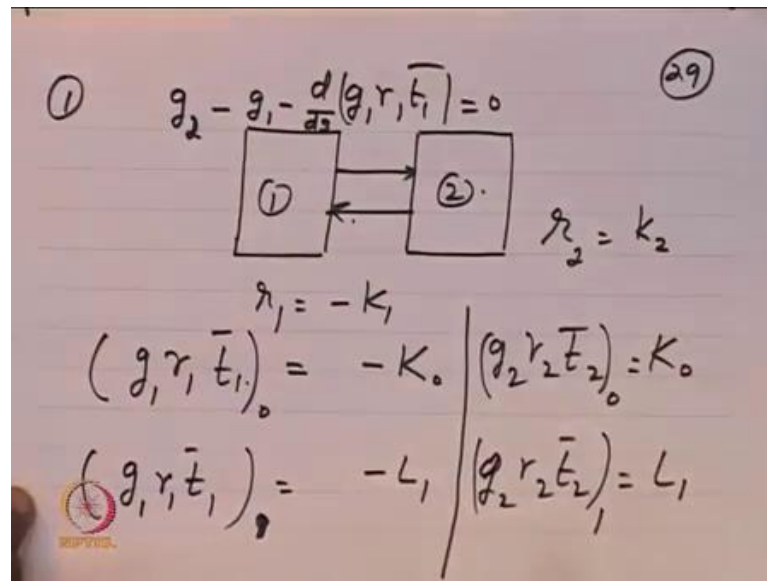 ① g₂ - g₁ - d/ds (g₁ r₁ t̄₁) = 0
㉙
① ②
r₂ = K₂
r₁ = - K₁
(g₁ r₁ t̄₁)₀ = - K₀ | (g₂ r₂ t̄₂)₀ = K₀
(g₁ r₁ t̄₁) = - L₁ | (g₂ r₂ t̄₂)₁ = L₁
NPTEL